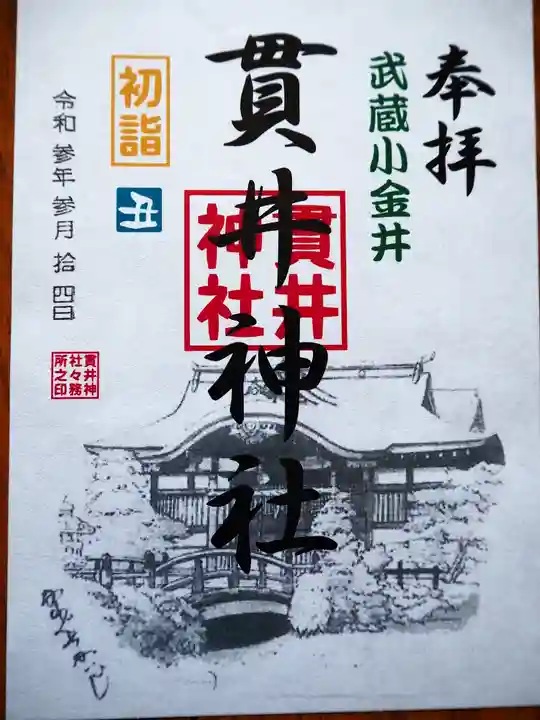 奉拝
武蔵小金井
貫井神社
貫井
神社
初詣
丑
令和 参年 参月 拾四日
貫井神
社々務
所之印